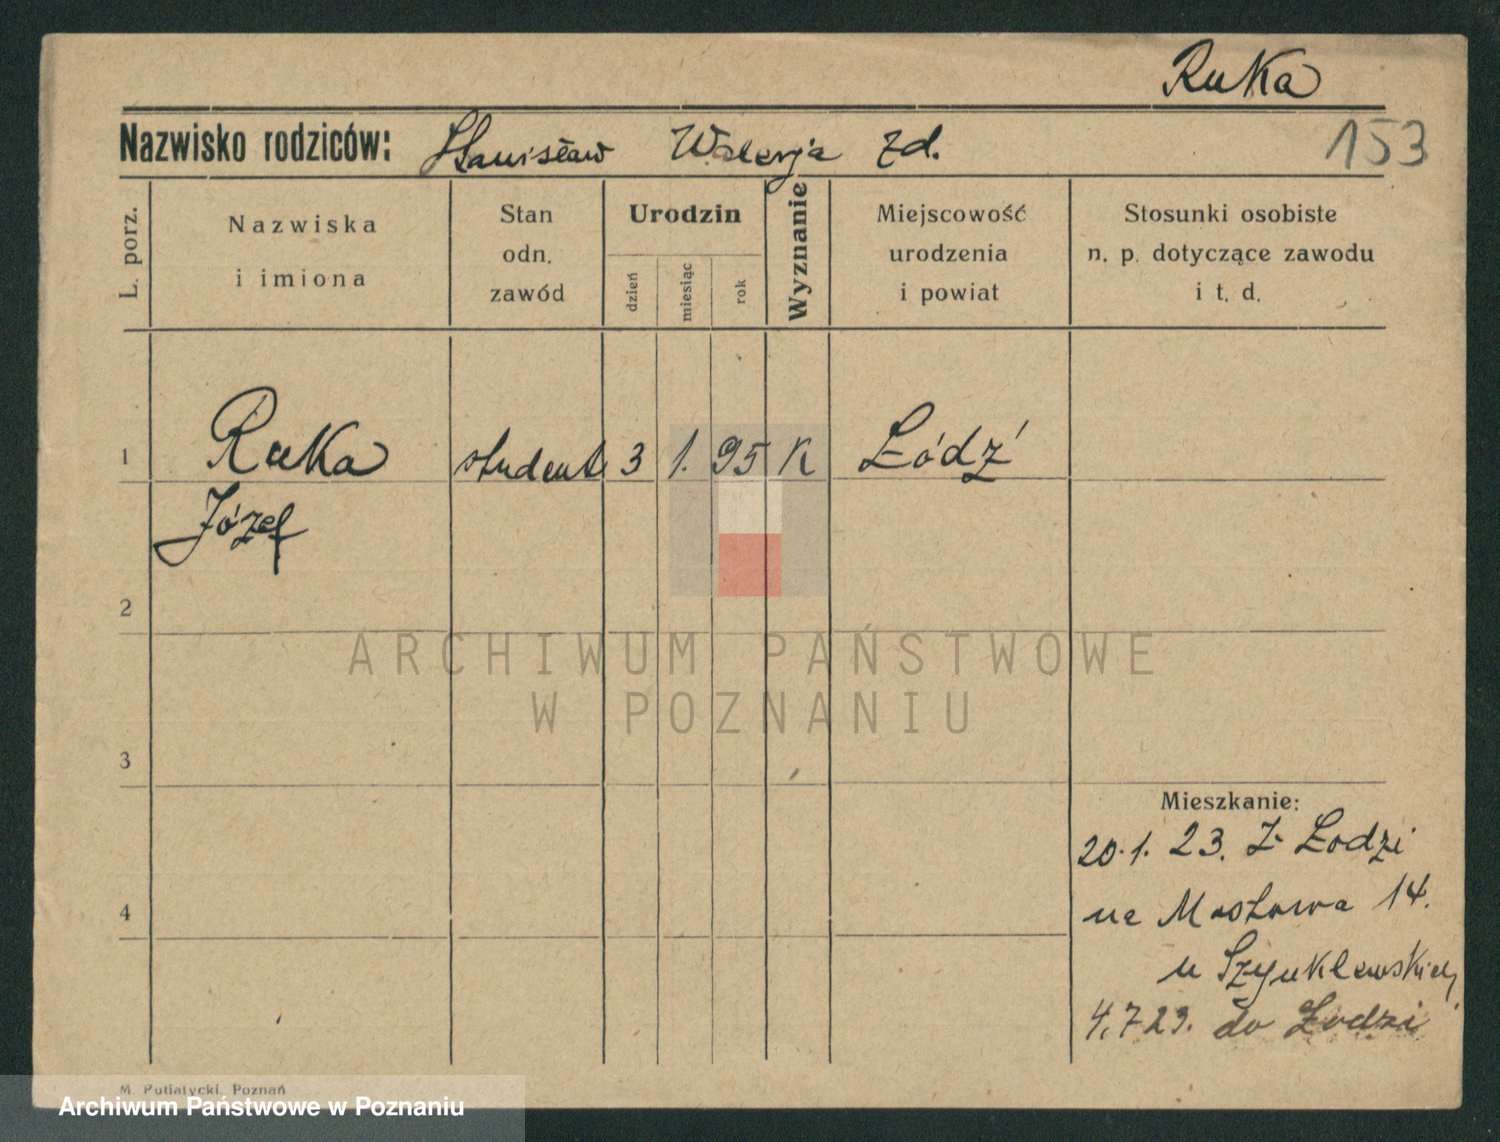 Ruka
Nazwisko rodziców: Stanisław Walerja zd.
153
L. porz.
Nazwiska
i imiona
Stan
odn.
zawód
Urodzin
dzień
miesiąc
rok
Wyznanie
Miejscowość
urodzenia
i powiat
Stosunki osobiste
n. p. dotyczące zawodu
i t. d.
1 Ruka student 3 1. 95 K Łódź
Józef
2
ARCHIWUM PAŃSTWOWE
W POZNANIU
3
Mieszkanie:
20.1. 23. Z Łodzi
na Mostowa 14.
4
u Szynklewskiej
4.7 23. do Łodzi
M. Putiatycki, Poznań
Archiwum Państwowe w Poznaniu